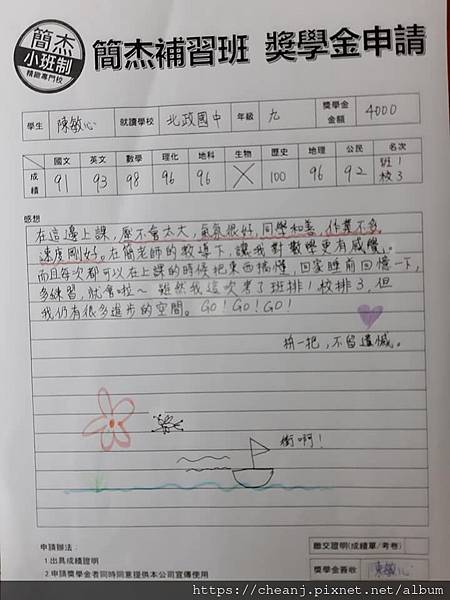 簡杰
小班制
精緻專門校
簡杰補習班 獎學金申請
學生 陳敏心 就讀學校 北政國中 年級 九 獎學金金額 4000
國文 英文 數學 理化 地科 生物 歷史 地理 公民 名次
成績 91 93 98 96 96 X 100 96 92 班1 校3
感想
在這邊上課，壓不會太大，氣氛很好，同學和善，作業不多
速度剛好。在簡老師的教導下，讓我對數學更有感覺。
而且每次都可以在上課的時候把東西搞懂，回家睡前回憶一下，
多練習，就會啦～ 雖然我這次考了班排1校排3，但
我仍有很多進步的空間。GO！GO！GO！
拚一把，不留遺憾。
衝啊！
申請辦法：
1.出具成績證明
2.申請獎學金者同時同意提供本公司宣傳使用
繳交證明(成績單/考卷)
獎學金簽收 陳敏心
https://cheanj.pixnet.net/album